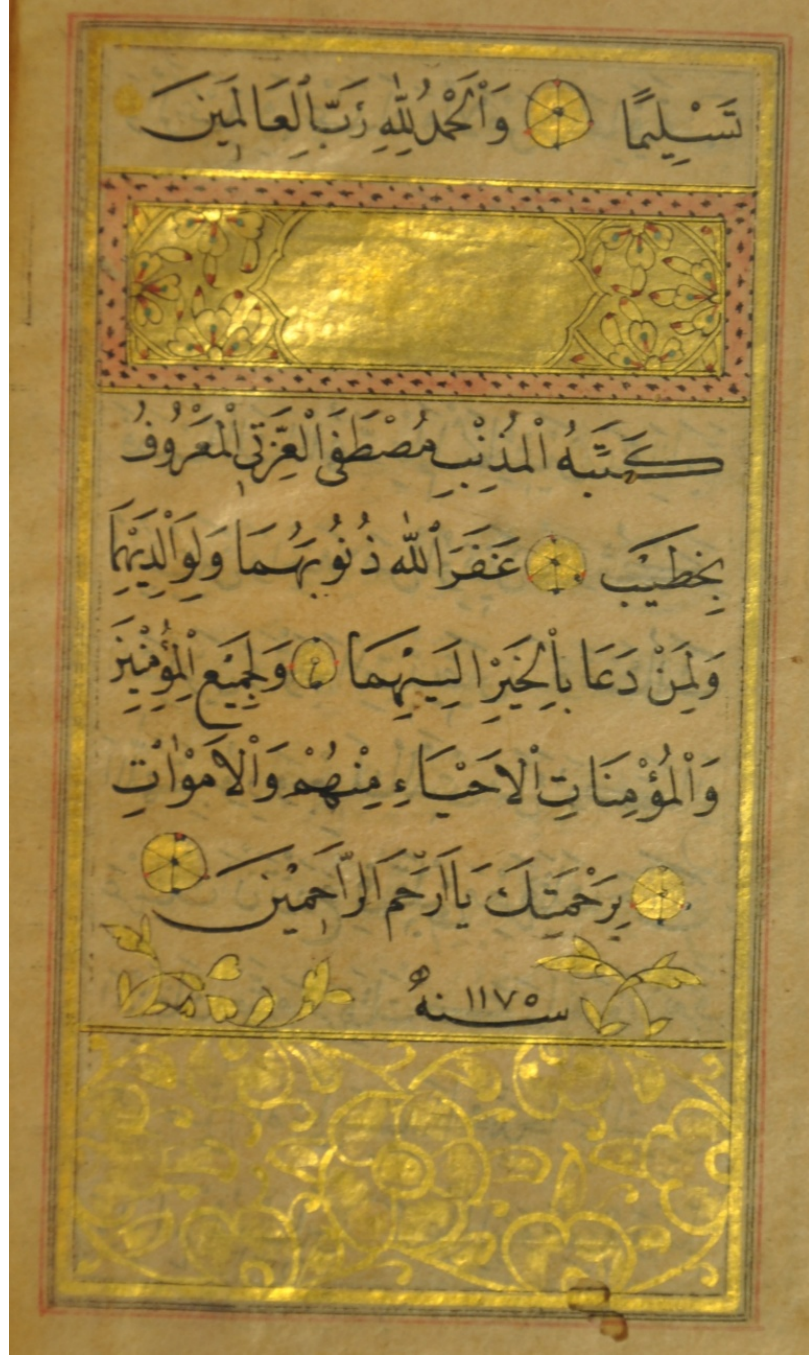 تَسْلِيمًا وَالْحَمْدُ لِلّٰهِ رَبِّ الْعَالَمِينَ
كَتَبَهُ الْمُذْنِبِ مُصْطَفَى الْعِزَّتِى الْمَعْرُوفُ
بِخَطِيبْ غَفَرَ اللّٰه ذُنُوبَهُمَا وَلِوَالِدَيْهِمَا
وَلِمَنْ دَعَا بِالْخَيْرِ اِلَيْهِمَا وَلِجَمِيْعِ الْمُؤْمِنِيْنَ
وَالْمُؤْمِنَاتِ الْاَحْيَاءِ مِنْهُمْ وَالْاَمْوَاتِ
بِرَحْمَتِكَ يَا اَرْحَمَ الرَّاحِمِيْنَ
سنه ١١٧٥